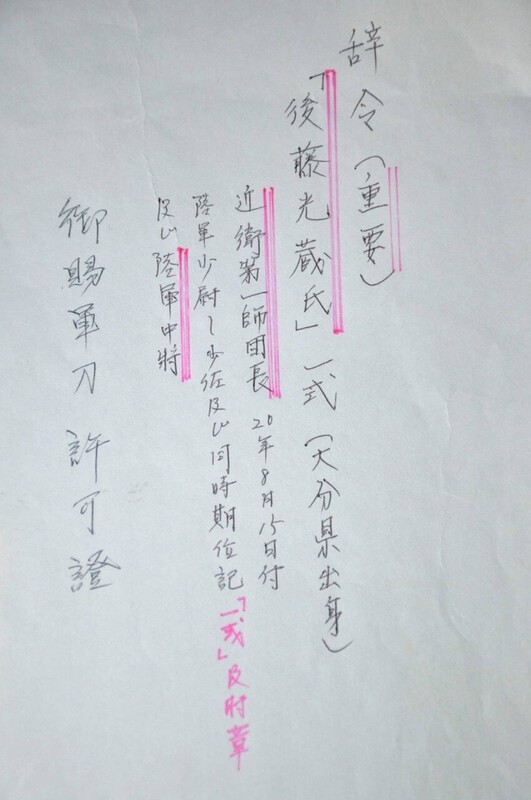 辞令(重要)
「後藤光蔵氏」一式(大分県出身)
近衛第一師団長 20年8月15日付
陸軍少尉~少佐及び同時期位記「一式」及肘章
及び陸軍中将
御賜軍刀許可證